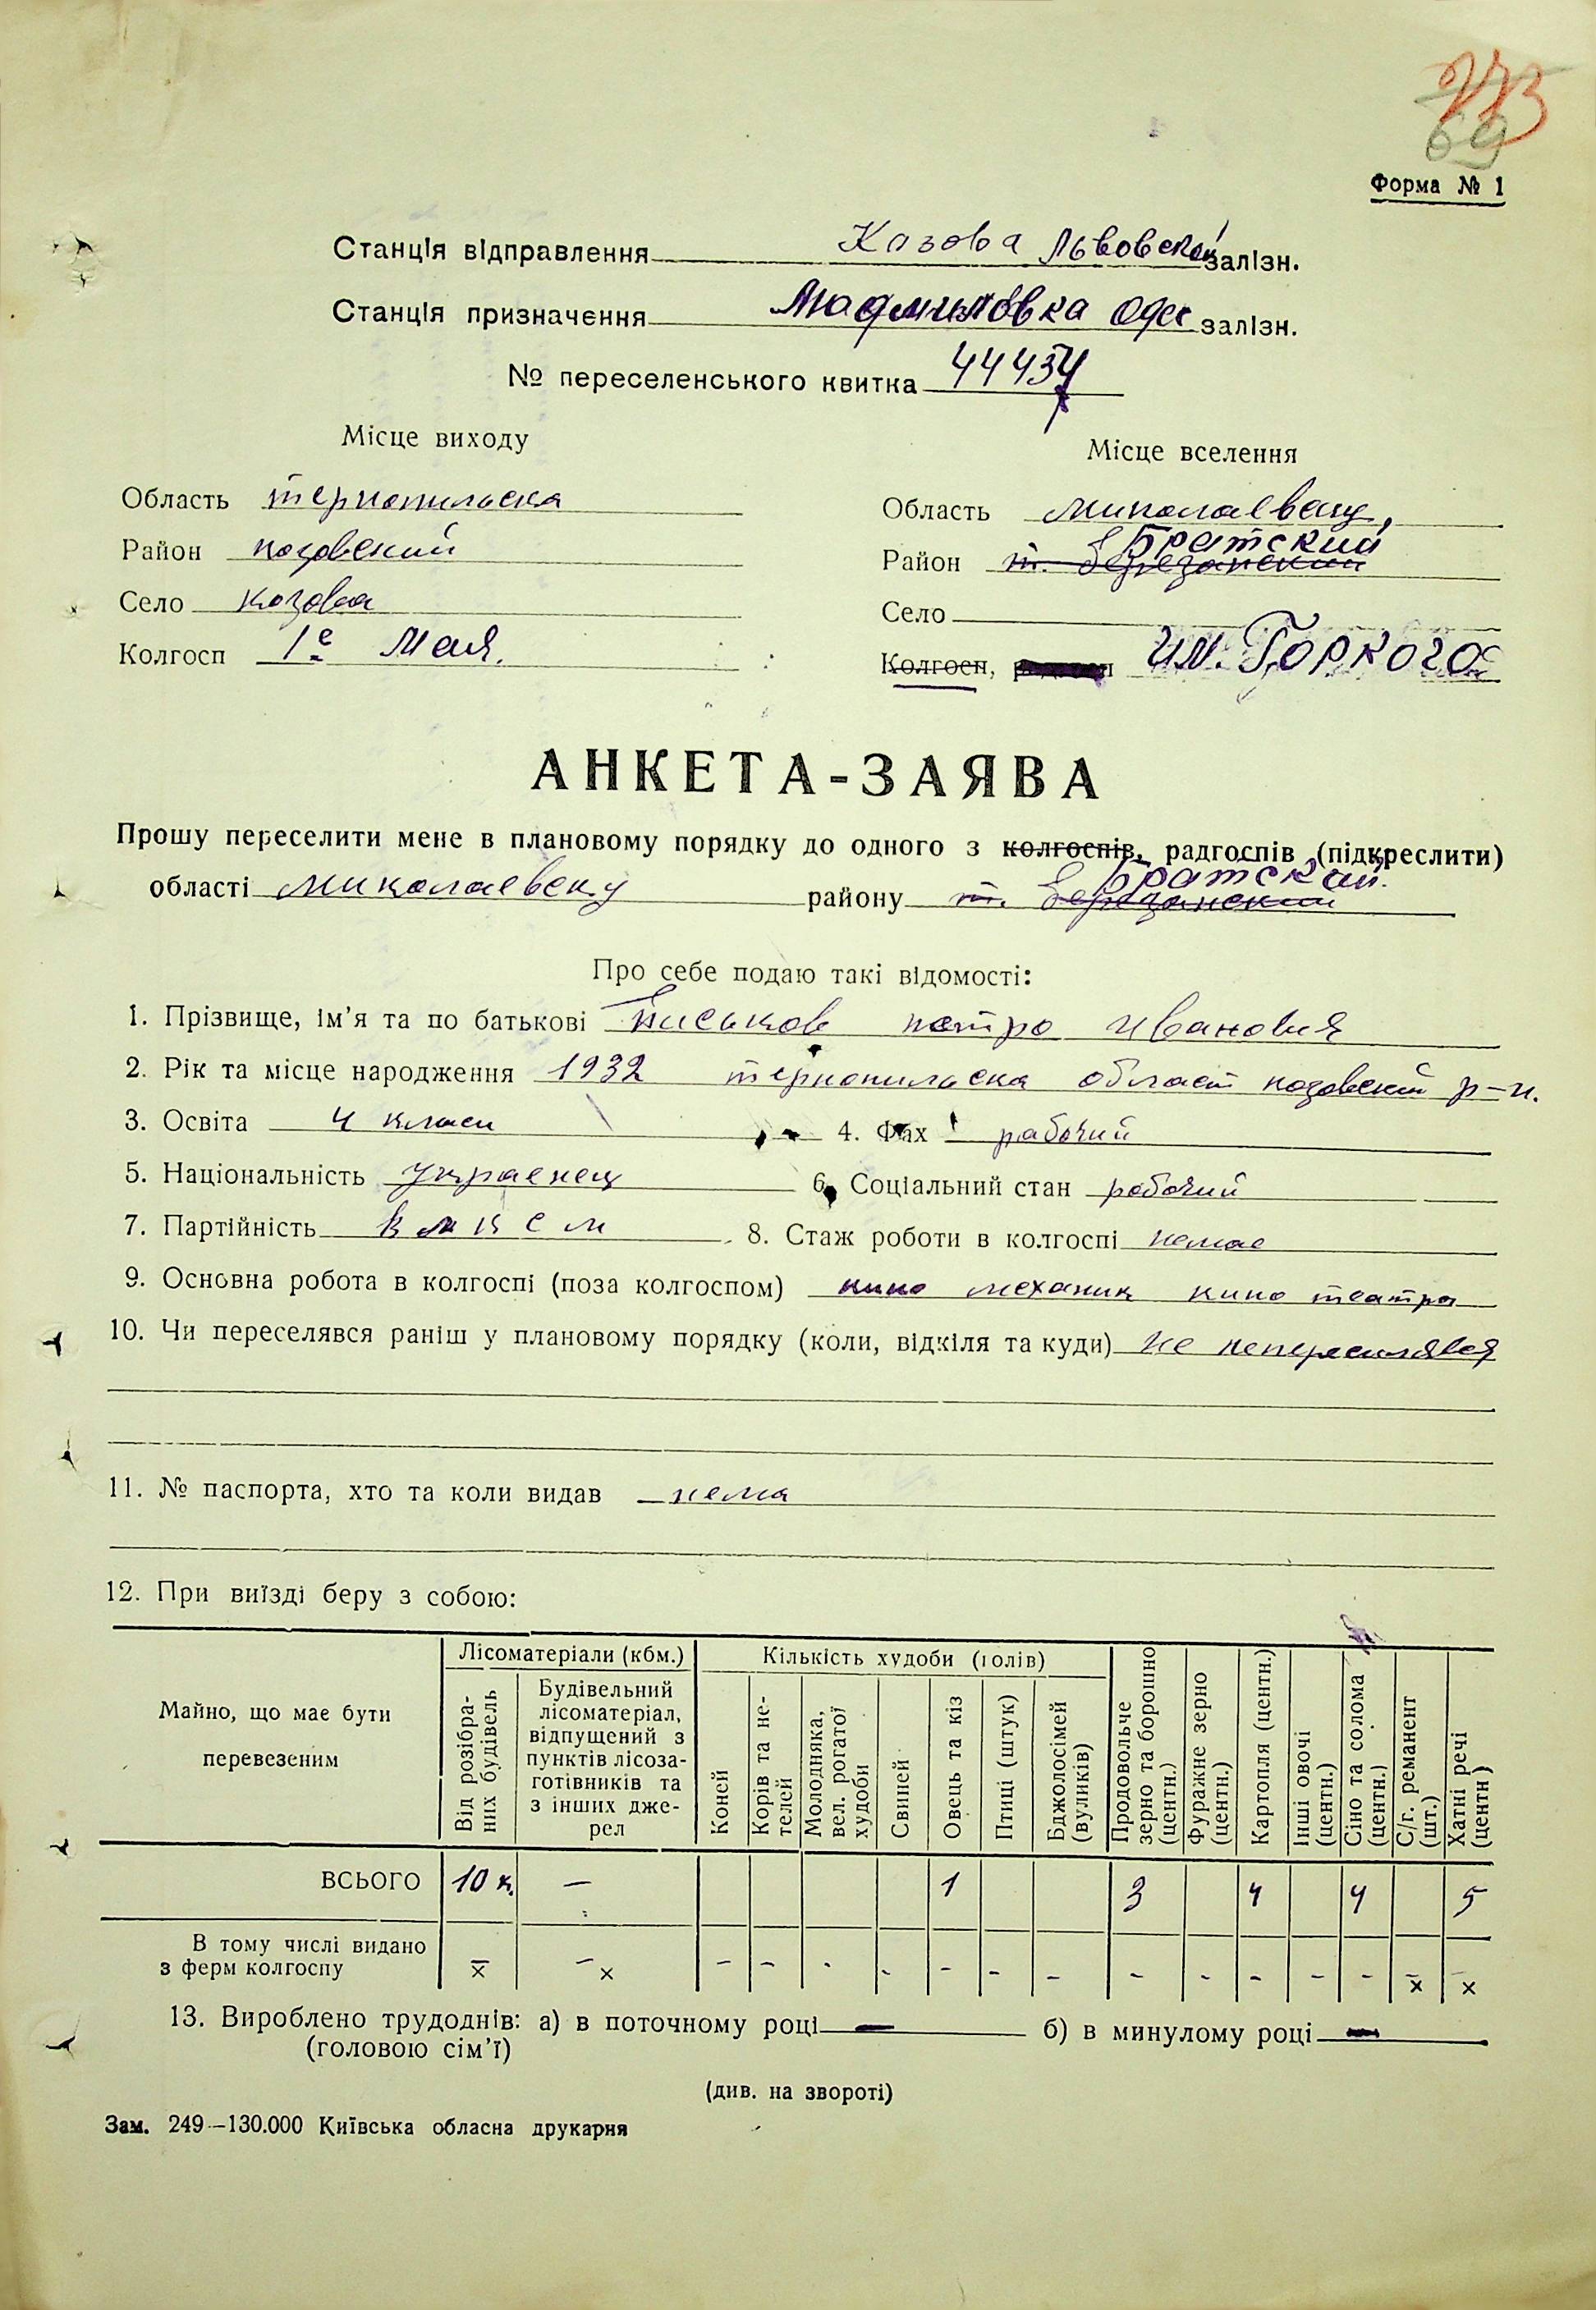 273
69
Форма № 1
Станція відправлення Козова Львовской залізн.
Станція призначення Людмиловка Одес залізн.
№ переселенського квитка 44437
Місце виходу
Місце вселення
Область тернопильска
Область миколаевску,
Район козовский
Братский
Район т. березанский
Село козова
Село
Колгосп 1е Мая.
Колгосп, им. Горкого
АНКЕТА-ЗАЯВА
Прошу переселити мене в плановому порядку до одного з колгоспів, радгоспів (підкреслити)
Братский.
області миколаевску району т. березанский
Про себе подаю такі відомості:
1. Прізвище, ім’я та по батькові петро Ивановия
2. Рік та місце народження 1932 тернопильска област козовский р-н.
3. Освіта 4 класи 4. Фах рабочий
5. Національність Украенец 6. Соціальний стан робочий
7. Партійність влксм 8. Стаж роботи в колгоспі немае
9. Основна робота в колгоспі (поза колгоспом) кино механик кино театра
10. Чи переселявся раніш у плановому порядку (коли, відкіля та куди) не
11. № паспорта, хто та коли видав нема
12. При виїзді беру з собою:
Майно, що має бути перевезеним
Лісоматеріали (кбм.)
Від розібраних будівель
Будівельний лісоматеріал, відпущений з пунктів лісозаготівників та з інших джерел
Кількість худоби (голів)
Коней
Корів та нетелей
Молодняка, вел. рогатої худоби
Свиней
Овець та кіз
Птиці (штук)
Бджолосімей (вуликів)
Продовольче зерно та борошно (центн.)
Фуражне зерно (центн.)
Картопля (центн.)
Інші овочі (центн.)
Сіно та солома (центн.)
С/г. реманент (шт.)
Хатні речі (центн)
ВСЬОГО 10 к. — 1 3 4 4 5
В тому числі видано
з ферм колгоспу – x – x – – - - - – – – - – – – – x – x
13. Вироблено трудоднів: а) в поточному році — б) в минулому році —
(головою сім’ї)
(див. на звороті)
Зам. 249—130.000 Київська обласна друкарня